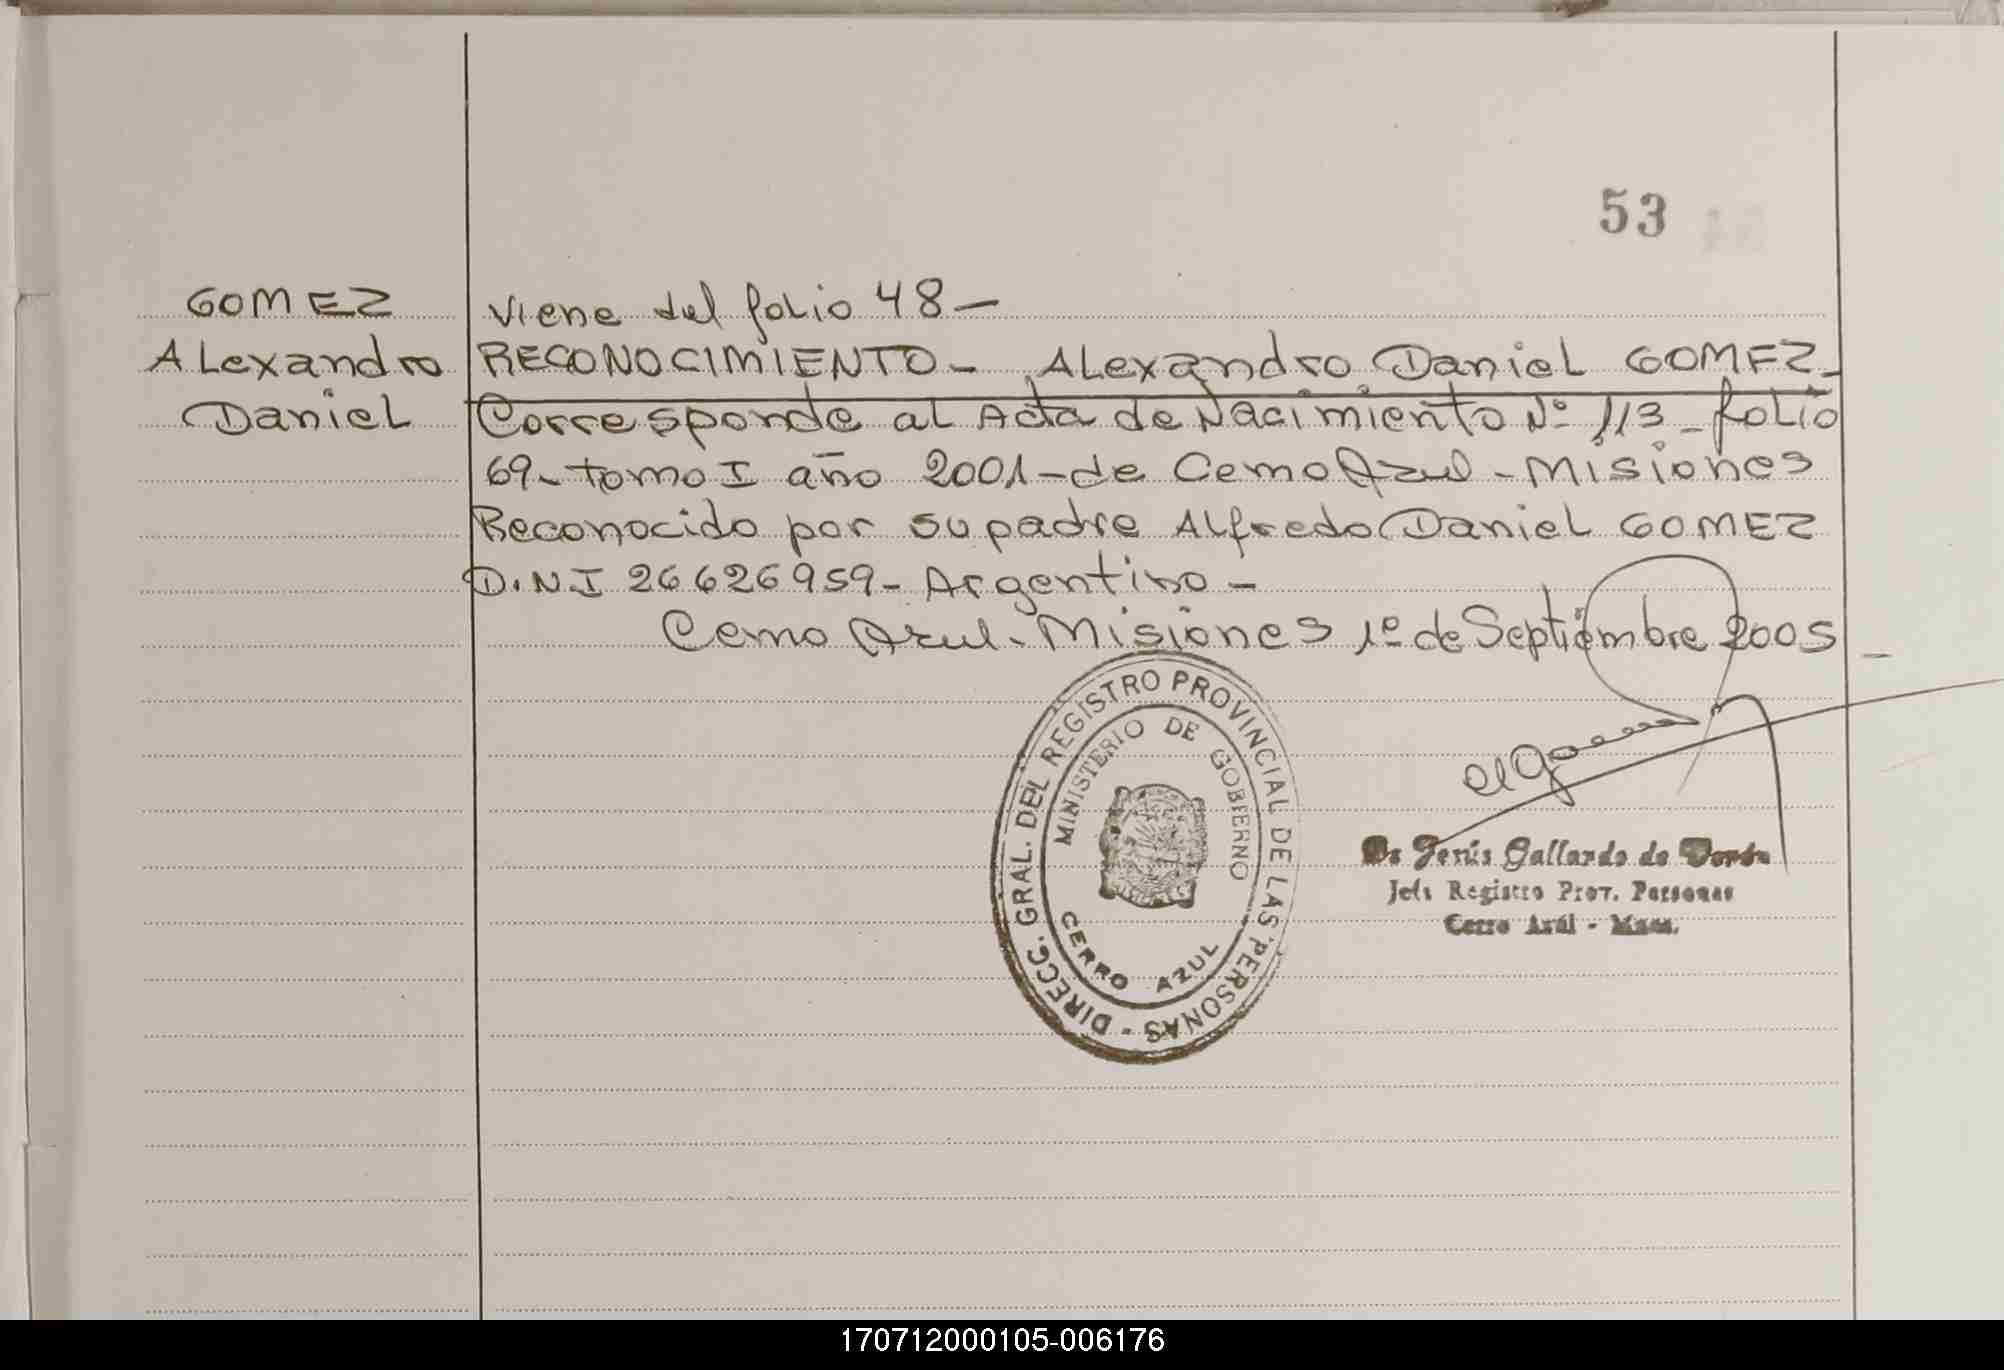 53
GOMEZ
Alexandro
Daniel
Viene del folio 48 –
RECONOCIMIENTO – Alexandro Daniel GOMEZ –
Corresponde al Acta de Nacimiento Nº 113 – folio
69 – tomo I año 2001 – de Cerro Azul – Misiones
Reconocido por su padre Alfredo Daniel GOMEZ
D.N.I 26626959 – Argentino –
Cerro Azul – Misiones 1º de Septiembre 2005 –
DIRECC. GRAL. DEL REGISTRO PROVINCIAL DE LAS PERSONAS -
MINISTERIO DE GOBIERNO
CERRO AZUL
Jesús Gallardo de
Jefe Registro Prov. Personas
Cerro Azul - Mnes.
170712000105-006176